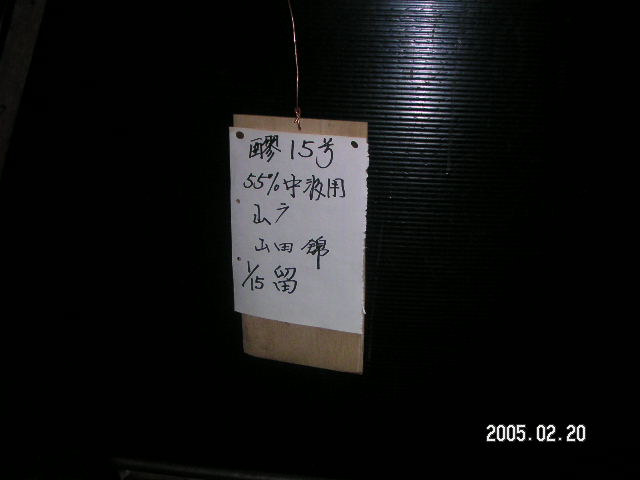 醪15号
55%中汲用
山廃
山田錦
1/15 留
2005.02.20